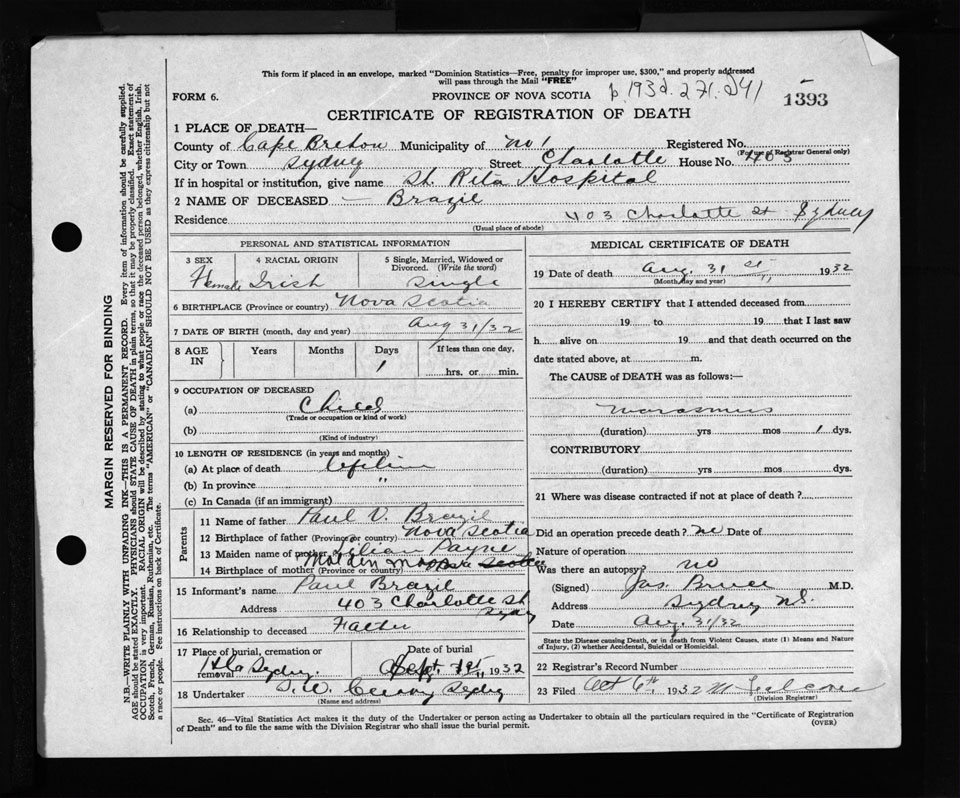 This form if placed in an envelope, marked "Dominion Statistics—Free, penalty for improper use, $300," and properly addressed
will pass through the Mail "FREE"
FORM 6.
PROVINCE OF NOVA SCOTIA
p. 1932. 271. 241
1393
CERTIFICATE OF REGISTRATION OF DEATH
1 PLACE OF DEATH—
County of Cape Breton Municipality of No 1 Registered No.
(For use of Registrar General only)
City or Town Sydney Street Charlotte House No. 403
If in hospital or institution, give name St. Rita Hospital
2 NAME OF DECEASED — Brazil
Residence 403 Charlotte St Sydney
(Usual place of abode)
PERSONAL AND STATISTICAL INFORMATION
3 SEX Female
4 RACIAL ORIGIN Irish
5 Single, Married, Widowed or Divorced. (Write the word) Single
6 BIRTHPLACE (Province or country) Nova Scotia
7 DATE OF BIRTH (month, day and year) Aug 31/32
8 AGE IN Years Months Days 1 If less than one day, hrs. or min.
9 OCCUPATION OF DECEASED
(a) Child
(Trade or occupation or kind of work)
(b)
(Kind of industry)
10 LENGTH OF RESIDENCE (in years and months)
(a) At place of death lifetime
(b) In province "
(c) In Canada (if an immigrant)
Parents
11 Name of father Paul V. Brazil
12 Birthplace of father (Province or country) Nova Scotia
13 Maiden name of mother Lilian Payne
14 Birthplace of mother (Province or country) Malden Mass
15 Informant's name Paul Brazil
Address 403 Charlotte St
Sydney
16 Relationship to deceased Father
17 Place of burial, cremation or removal Sydney
Date of burial Sept. 1st 1932
18 Undertaker Sydney
(Name and address)
MEDICAL CERTIFICATE OF DEATH
19 Date of death Aug. 31 st 1932
(Month, day and year)
20 I HEREBY CERTIFY that I attended deceased from
19 to 19 that I last saw
h alive on 19 and that death occurred on the
date stated above, at m.
The CAUSE of DEATH was as follows:—
Marasmus
(duration) yrs mos 1 dys.
CONTRIBUTORY
(duration) yrs mos dys.
21 Where was disease contracted if not at place of death?
Did an operation precede death? no Date of
Nature of operation
Was there an autopsy? no
(Signed) Jas. Bruce M.D.
Address Sydney N.S.
Date Aug. 31/32
State the Disease causing Death, or in death from Violent Causes, state (1) Means and Nature
of Injury, (2) whether Accidental, Suicidal or Homicidal.
22 Registrar's Record Number
23 Filed Oct 6th 1932
(Division Registrar)
Sec. 46—Vital Statistics Act makes it the duty of the Undertaker or person acting as Undertaker to obtain all the particulars required in the "Certificate of Registration
of Death" and to file the same with the Division Registrar who shall issue the burial permit.
(OVER)
MARGIN RESERVED FOR BINDING
N.B.—WRITE PLAINLY WITH UNFADING INK—THIS IS A PERMANENT RECORD. Every item of information should be carefully supplied.
AGE should be stated EXACTLY. PHYSICIANS should STATE CAUSE OF DEATH in plain terms, so that it may be properly classified. Exact statement of
OCCUPATION is very important. RACIAL ORIGIN will be described by stating to what people or race the deceased person belonged, whether English, Irish,
Scotch, French, German, Russian, Ruthenian, etc. The terms "AMERICAN" or "CANADIAN" SHOULD NOT BE USED as they express citizenship but not
a race or people. See instructions on back of Certificate.